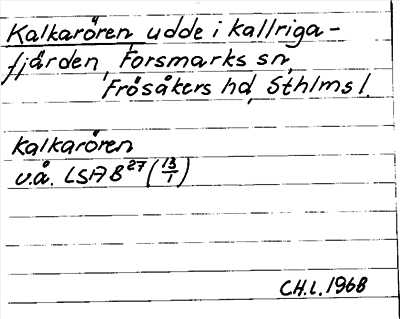 Kalkarören udde i Kallriga-
fjärden, Forsmarks sn,
Frösåkers hd, Sthlms l.
Kalkarören
u.å. LSA B 27 (13/1)
CH.l. 1968